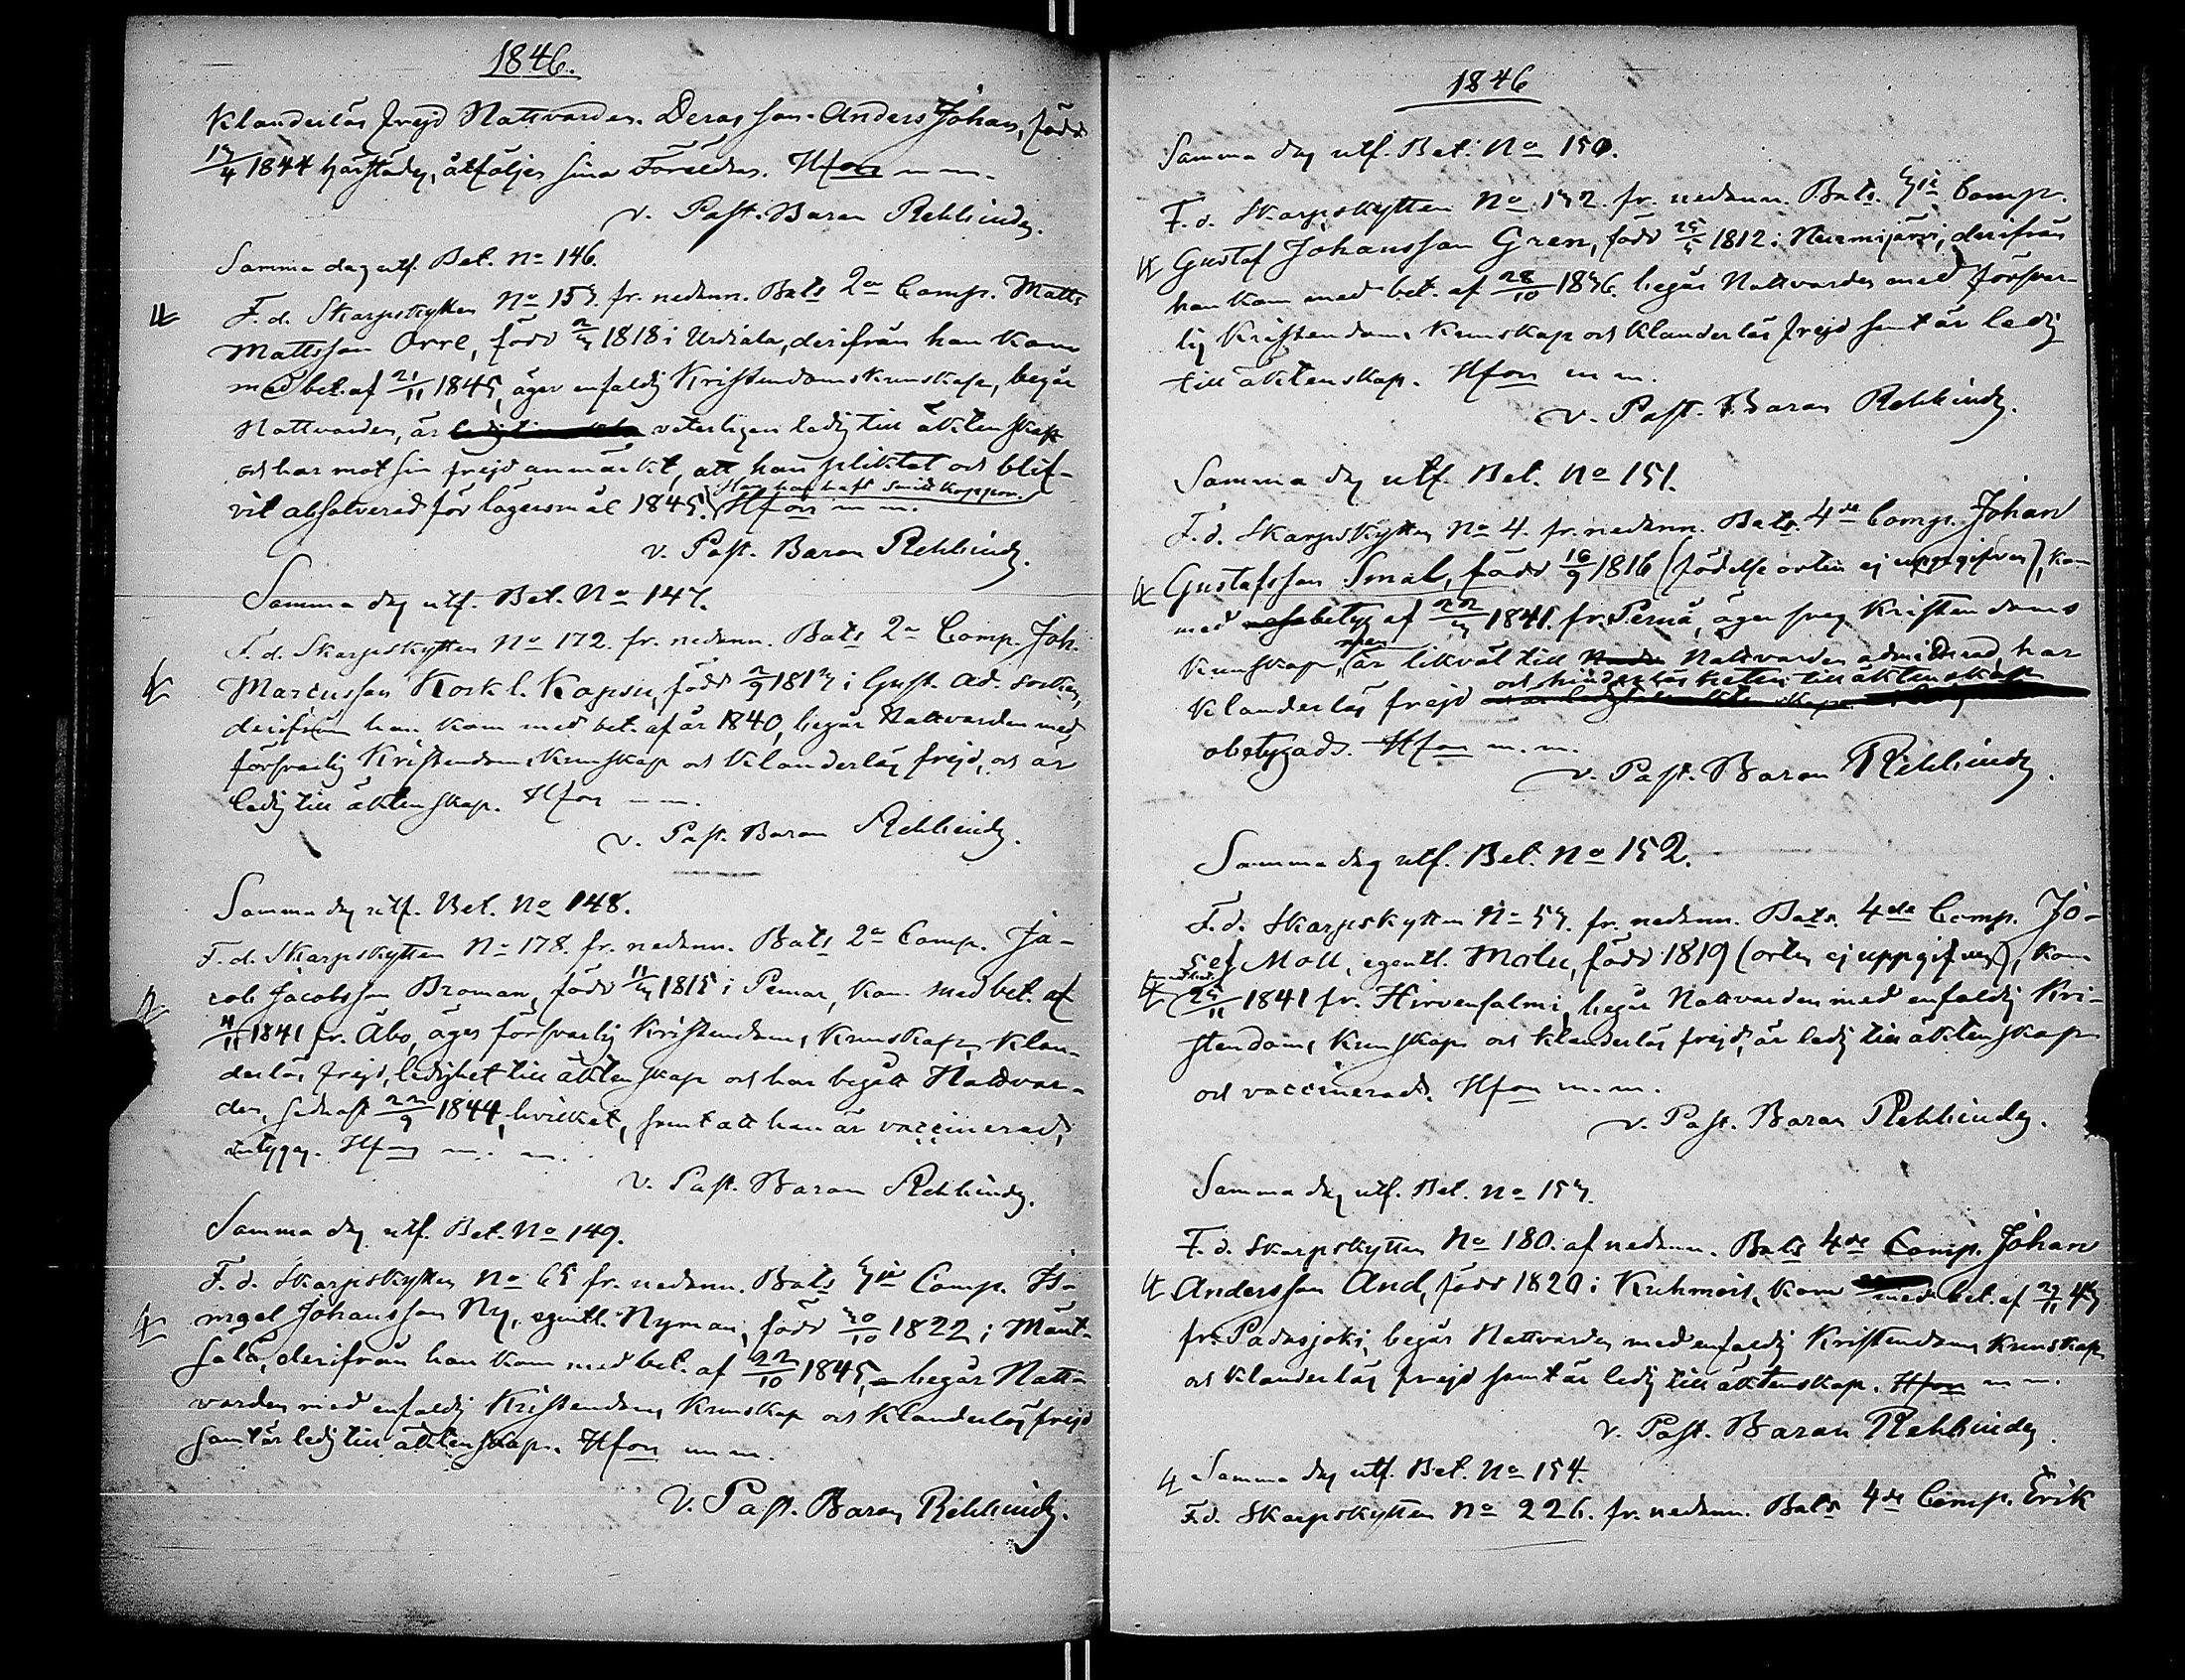 1846.
Klanderlös frejd Nattvarden. Deras son Anders Johan, född
13/4 1844 härstädes, åtföljer sina Föräldrar. Hfors m m.
v. Past. Baron Rehbinder.
Samma dag utf. Bet. No 146.
F. d. Skarpskytten No 153. fr. nedann. Bats 2a Comp. Matts
Mattsson Orre, född 2/3 1818 i Urdiala, derifrån han kom
med bet. af 21/11 1845, äger enfaldig Kristendoms kunskap, begår
Nattvarden, är veterligen ledig till äktenskap
och har mot sin frejd anmärkt, att han pliktat och blif-
vit absolverad för lägersmål 1845. Han har haft Smittkoppor. Hfors m m.
v. Past. Baron Rehbinder.
Samma dag utf. Bet. No 147.
F. d. Skarpskytten No 172. fr. nedann. Bats 2a Comp. Joh.
Marcusson Kork l. Kapsu, född 2/9 1813 i Gust. Ad. Socken,
derifrån han kom med bet. af år 1840, begår Nattvarden med
försvarlig Kristendoms Kunskap och Klanderlös frejd, och är
ledig till äktenskap. Hfors m m.
v. Past. Baron Rehbinder.
Samma dag utf. Bet. No 148.
F. d. Skarpskytten No 178. fr. nedann. Bats 2a Comp. Ja-
cob Jacobsson Broman, född 11/3 1815 i Pemar, kom med bet. af
4/11 1841 fr. Åbo, äger försvarlig Kristendoms Kunskap, Klan-
derlös frejd, ledighet till äktenskap och har begått Nattvar-
den, sednast 22/9 1844, hvilket, samt att han är vaccinerad,
intygas. Hfors m. m.
v. Past. Baron Rehbinder.
Samma dag utf. Bet. No 149.
F. d. Skarpskytten No 65 fr. nedann. Bats 3ie Comp. Is-
rael Johansson Ny, egentl. Nyman, född 30/10 1822 i Mänt-
sälä, derifrån han kom med bet. af 22/10 1845, begår Natt-
varden med enfaldig Kristendoms Kunskap och Klanderlös frejd
samt är ledig till äktenskap. Hfors m m.
V. Past. Baron Rehbinder.
1846
Samma dag utf. Bet. No 150.
F. d. Skarpskytten No 132. fr. nedann. Bats. 3ie Comp.
Gustaf Johansson Gren, född 25/5 1812 i Nurmijärvi, derifrån
han kom med bet. af 28/10 1836. begår Nattvarden med försvar-
lig Kristendoms Kunskap och Klanderlös frejd samt är ledig
till äktenskap. Hfors m m.
v. Past. Baron Rehbinder.
Samma dag utf. Bet. No 151.
F. d. Skarpskytten No 4. fr. nedann. Bats. 4de Comp. Johan
Gustafsson Smal, född 16/9 1816 (födelse orten ej uppgifven), kom
med betyg af 22/3 1841. fr. Pernå, äger svag Kristendoms
Kunskap, men är likväl till Nattvarden admitterad, har
Klanderlös frejd och hinderslösheten till äktenskap
obetygad. Hfors m. m.
v. Past. Baron Rehbinder.
Samma dag utf. Bet. No 152.
F. d. Skarpskytten No 53. fr. nedann. Bats. 4de Comp. Jo-
sef Moll, egentl. Molu, född 1819 (orten ej uppgifven), kom
25/11 1841 fr. Hirvensalmi, begår Nattvarden med enfaldig Kri-
stendoms Kunskap och klanderlös frejd, är ledig till äktenskap
och vaccinerad. Hfors m. m.
v. Past. Baron Rehbinder.
Samma dag utf. Bet. No 153.
F. d. Skarpskytten No 180. af nedann. Bats 4de Comp. Johan
Andersson And, född 1820 i Kuhmois, kom med bet. af 29/11 43
fr. Padasjoki, begår Nattvarden med enfaldig Kristendoms Kunskap
och Klanderlös frejd samt är ledig till äktenskap. Hfors m m.
v. Past. Baron Rehbinder.
Samma dag utf. Bet. No 154.
F. d. Skarpskytten No 226. fr. nedann. Bats 4de Comp. Erik